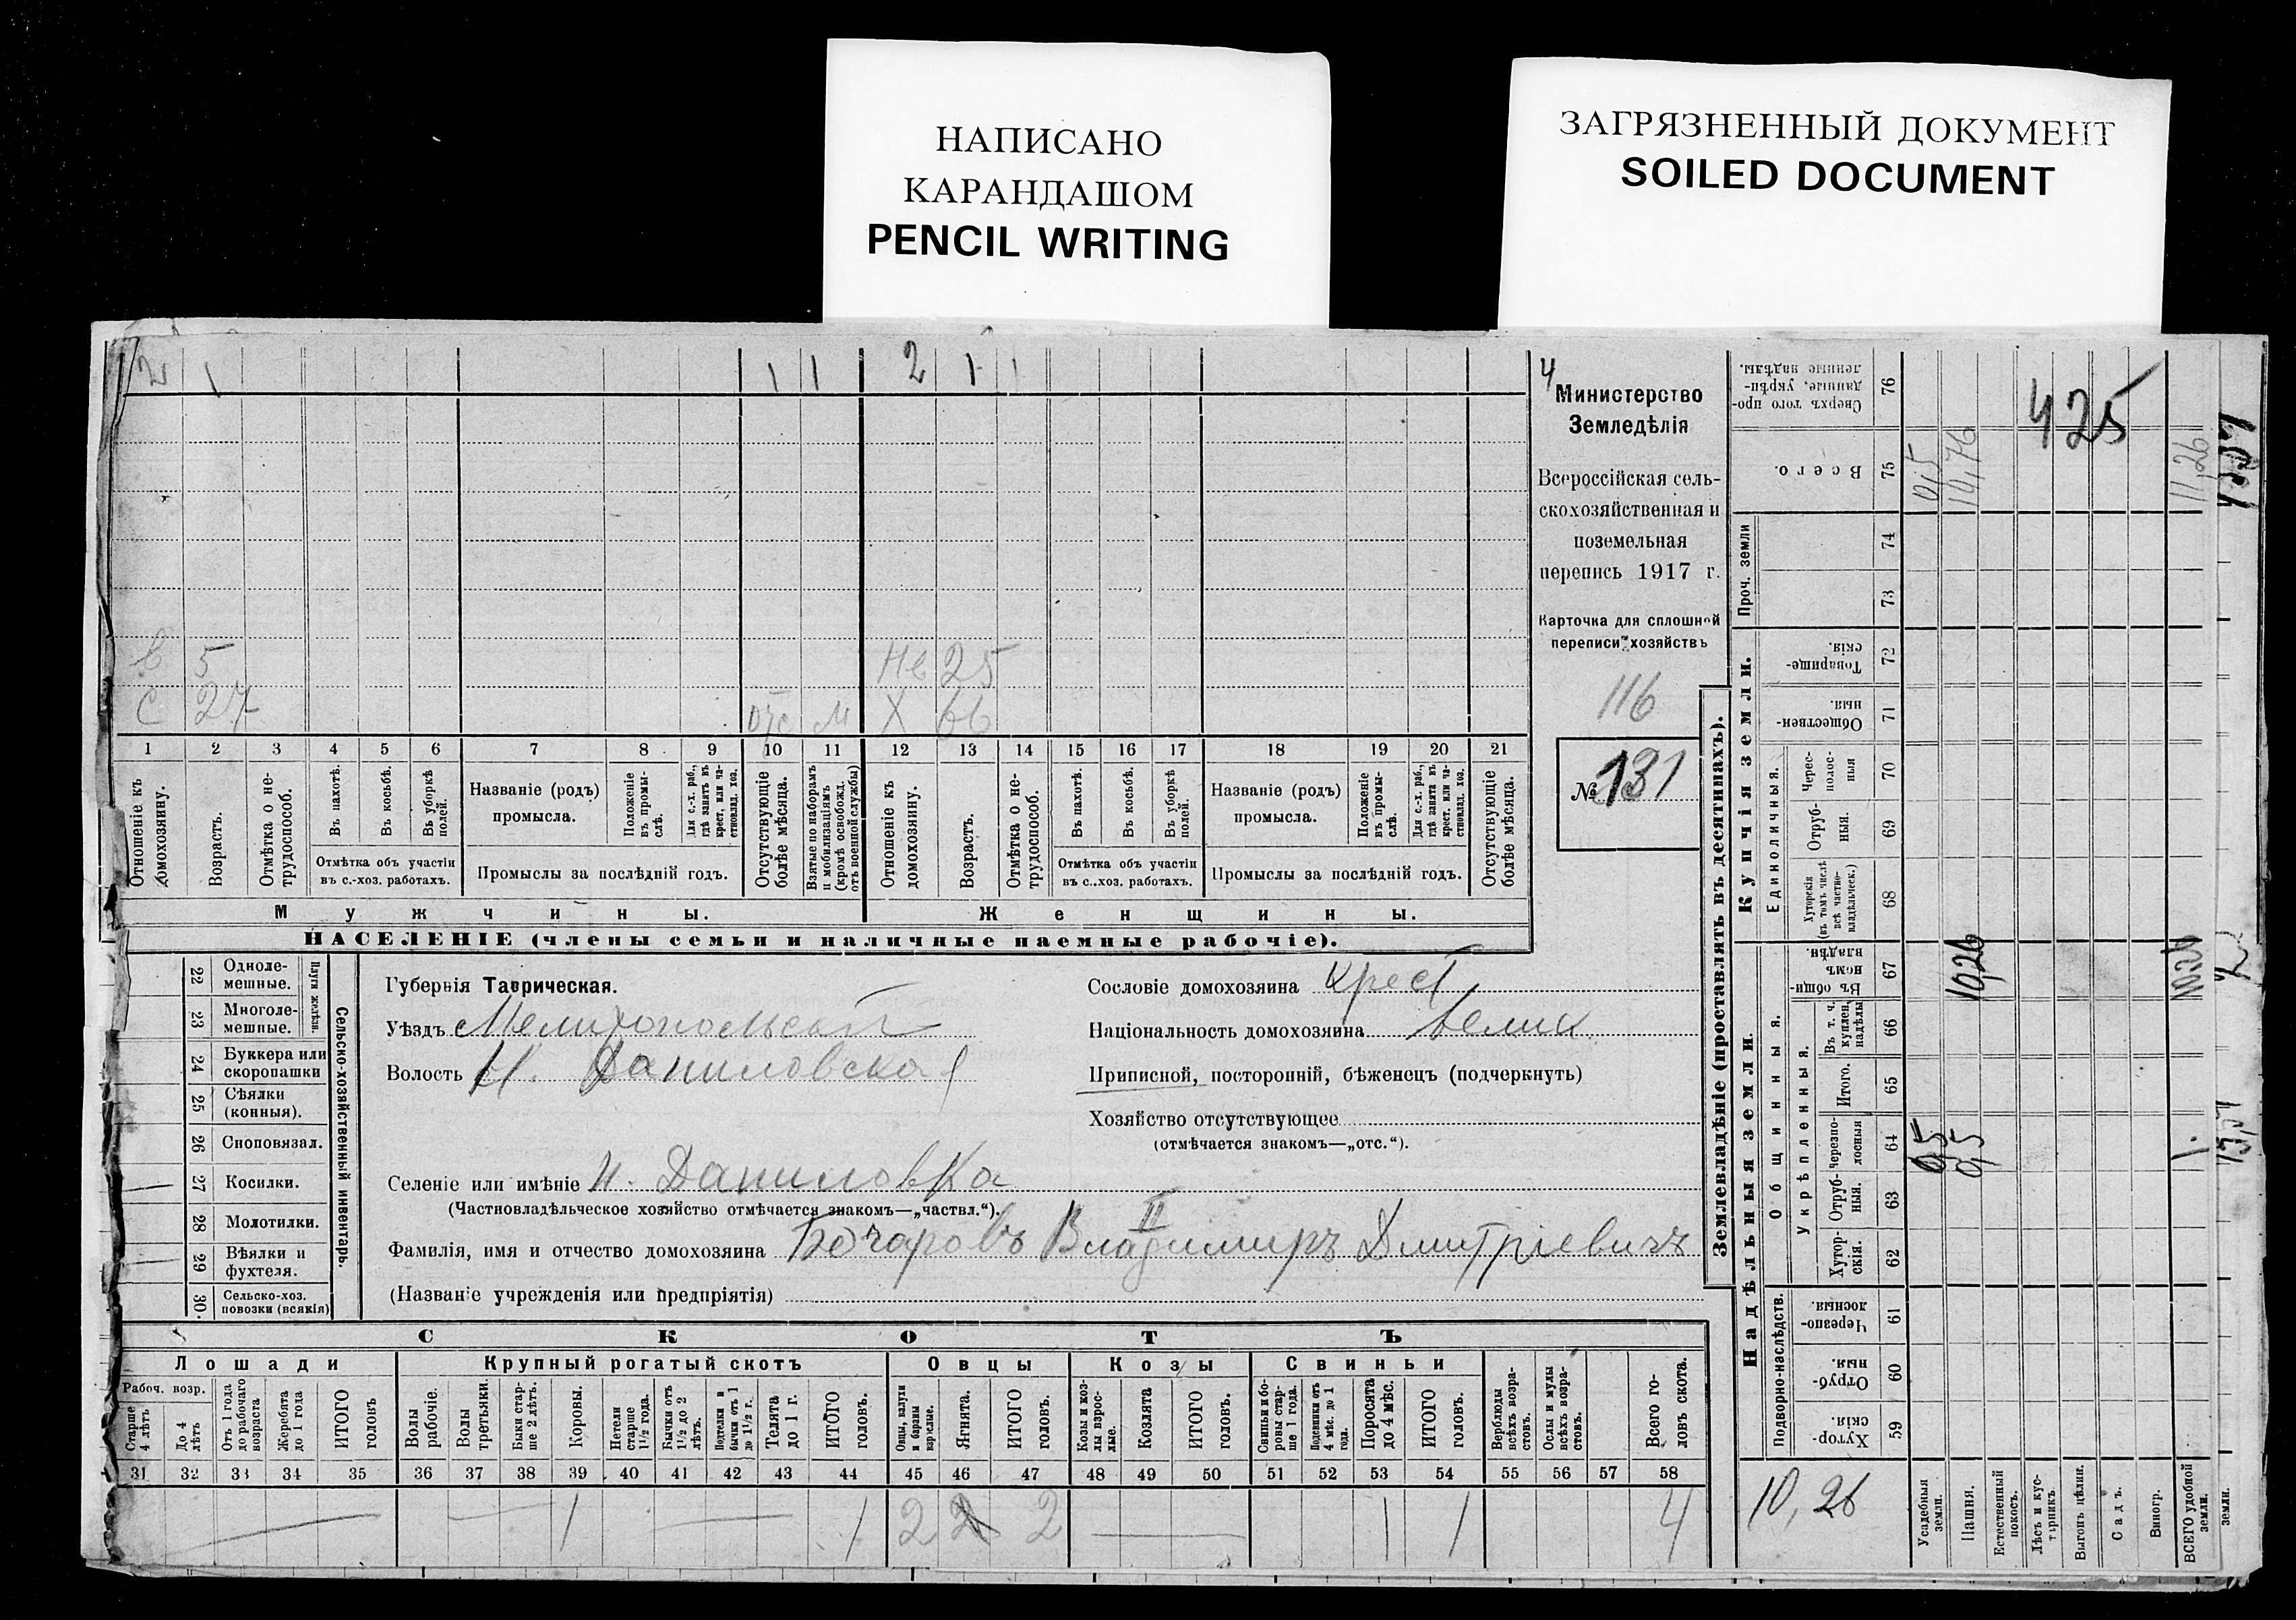 НАПИСАНО
КАРАНДАШОМ
PENCIL WRITING
ЗАГРЯЗНЕННЫЙ ДОКУМЕНТ
SOILED DOCUMENT
2 1 1 1 2 1 1
в 5 не 25
с 27 отс м х 66
1 2 3 4 5 6 7 8 9 10 11 12 13 14 15 16 17 18 19 20 21
Отношеніе къ домохозяину.
Возрастъ.
Отмѣтка о не-трудоспособ.
Въ пахотѣ.
Въ косьбѣ.
Въ уборкѣ полей.
Отмѣтка объ участіи
въ с.-хоз. работахъ.
Названіе (родъ)
промысла.
Положеніе въ промы-слѣ.
Для с.-х. раб., гдѣ занятъ въ крест. или ча-стновлад. хоз.
Промыслы за послѣдній годъ.
Отсутствующіе болѣе мѣсяца.
Взятые по наборамъ и мобилизаціямъ (кромѣ освобожд. отъ военной службы)
Отношеніе къ домохозяину.
Возрастъ.
Отмѣтка о не-трудоспособ.
Въ пахотѣ.
Въ косьбѣ.
Въ уборкѣ полей.
Отмѣтка объ участіи
въ с.-хоз. работахъ.
Названіе (родъ)
промысла.
Положеніе въ промы-слѣ.
Для с.-х. раб., гдѣ занята въ крест. или ча-стновлад. хоз.
Промыслы за послѣдній годъ.
Отсутствующіе болѣе мѣсяца.
Мужчины.
Женщины.
НАСЕЛЕНІЕ (члены семьи и наличные наемные рабочіе).
4
Министерство
Земледѣлія
Всероссійская сель-
скохозяйственная и
поземельная
перепись 1917 г.
Карточка для сплошной
переписи хозяйствъ
116
№ 131
22 Одноле-мешные.
23 Многоле-мешные.
Плуги желѣзн.
24 Буккера или скоропашки
25 Сѣялки (конныя).
26 Сноповязал.
27 Косилки.
28 Молотилки.
29 Вѣялки и фухтеля.
30. Сельско-хоз. повозки (всякія)
Сельско-хозяйственный инвентарь.
Губернія Таврическая.
Уѣздъ Мелитопольскій
Волость Н. Даниловская
Селеніе или имѣніе Н. Даниловка
(Частновладѣльческое хозяйство отмѣчается знакомъ—„частвл.“).
Фамилія, имя и отчество домохозяина Бочаровъ Владимиръ II Дмитріевичъ
(Названіе учрежденія или предпріятія)
Сословіе домохозяина крест
Національность домохозяина велик
Приписной, посторонній, бѣженецъ (подчеркнуть)
Хозяйство отсутствующее
(отмѣчается знакомъ—„отс.“).
СКОТЪ
Лошади
Крупный рогатый скотъ
Овцы
Козы
Свиньи
Рабоч. возр.
Старше 4 лѣтъ
До 4 лѣтъ
Отъ 1 года до рабочаго возраста
Жеребята до 1 года
ИТОГО головъ
Волы рабочіе.
Волы третьяки.
Быки стар-ше 2 лѣтъ.
Коровы.
Нетели старше 1½ года.
Бычки отъ 1½ до 2 лѣтъ.
Подтелки и бычки отъ 1 до 1½ г.
Телята до 1 г.
ИТОГО головъ.
Овцы, валухи и бараны взрослые.
Ягнята.
ИТОГО головъ.
Козы и коз-лы взрос-лые.
Козлята
ИТОГО головъ.
Свиньи и бо-ровы стар-ше 1 года.
Подсвинки отъ 4 мѣс. до 1 года.
Поросята до 4 мѣс.
ИТОГО головъ.
Верблюды всѣхъ возра-стовъ.
Ослы и мулы всѣхъ возра-стовъ.
Всего го-ловъ скота.
31 32 33 34 35 36 37 38 39 40 41 42 43 44 45 46 47 48 49 50 51 52 53 54 55 56 57 58
1 1 2 2 2 1 1 4
Землевладѣніе (проставлять въ десятинахъ).
Надѣльныя земли.
Купчія земли.
Проч. земли
Подворно-наслѣдств.
Общинныя.
Укрѣпленныя.
Единоличныя.
Хутор-скія. 59
Отруб-ныя. 60
Черезпо-лосныя. 61
Хутор-скія. 62
Отруб-ныя. 63
Черезпо-лосныя 64
Итого. 65
Въ т. ч. куплен. надѣлы 66
Въ общи-номъ владѣн. 67
Хуторскія (въ томъ числѣ всѣ частно-владѣльческ.) 68
Отруб-ныя. 69
Черес-полос-ныя 70
Обществен-ныя. 71
Товарище-скія. 72
73
74
Всего. 75
Сверхъ того про-данные, укрѣп-ленные надѣлы. 76
10,26
Усадебныя земли.
Пашня.
Естественный покосъ.
Лѣсъ и кус-тарникъ.
Выгонъ цѣлин.
Садъ.
Виногр.
ВСЕГО удобной земли.
0,5 0,5
0,5 10,26 10,76
425
1. 10,26 11,26